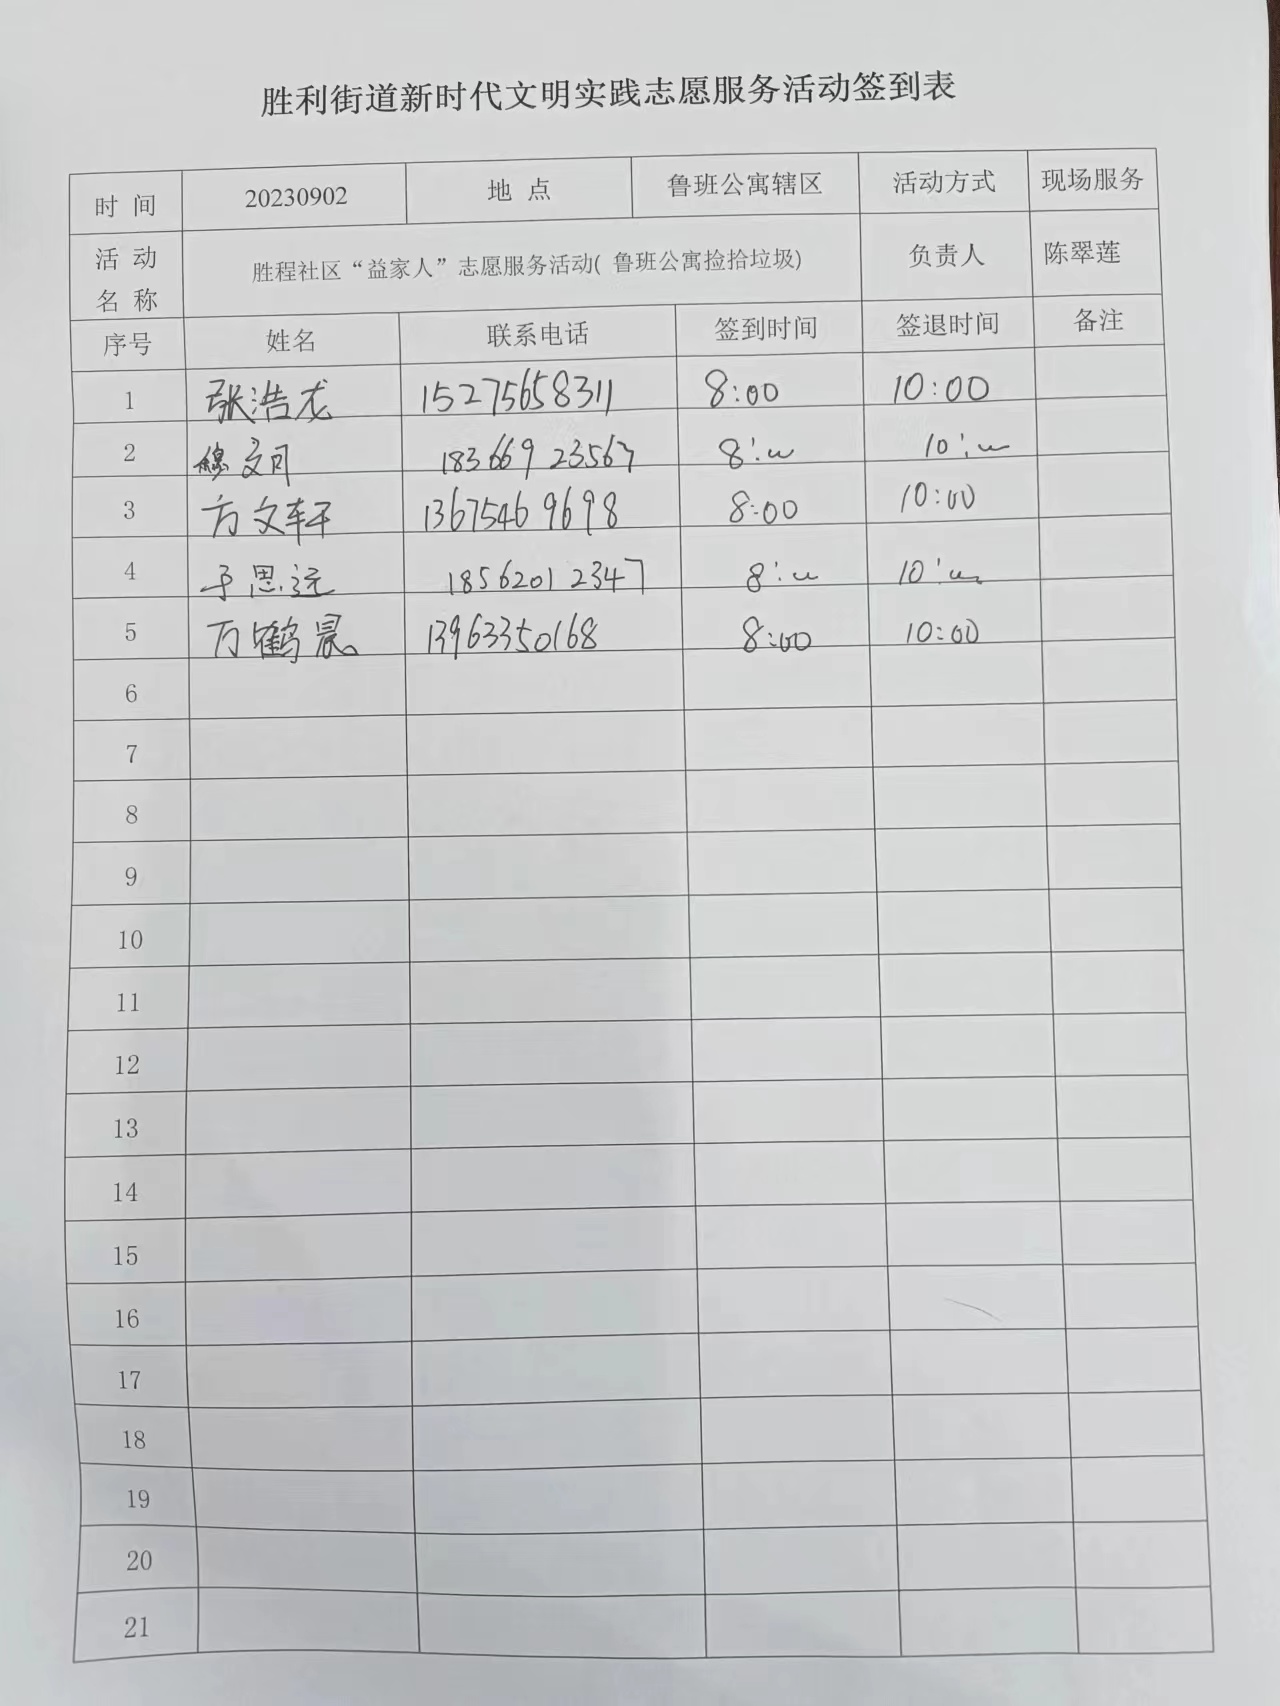 胜利街道新时代文明实践志愿服务活动签到表
时 间 20230902 地 点 鲁班公寓辖区 活动方式 现场服务
活 动 名 称 胜程社区“益家人”志愿服务活动( 鲁班公寓捡拾垃圾) 负责人 陈翠莲
序号 姓名 联系电话 签到时间 签退时间 备注
1 张浩龙 15275658311 8:00 10:00
2 文月 18366923567 8:00 10:00
3 方文轩 13675469698 8:00 10:00
4 于思远 18562012347 8:00 10:00
5 万鹤晨 13963350168 8:00 10:00
6
7
8
9
10
11
12
13
14
15
16
17
18
19
20
21